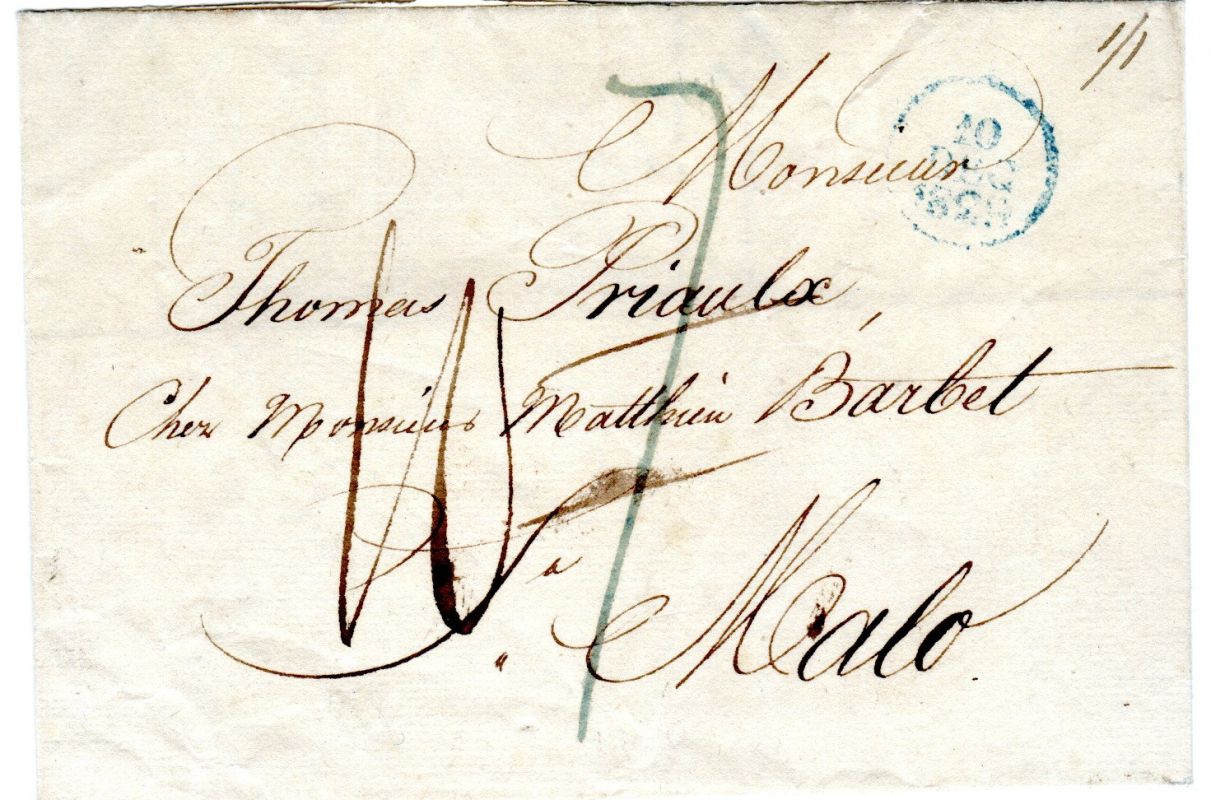 1/1
10
Monsieur
Thomas Priaulx,
Chez Monsieur Matthieu Barbet
a
St. Malo.
7